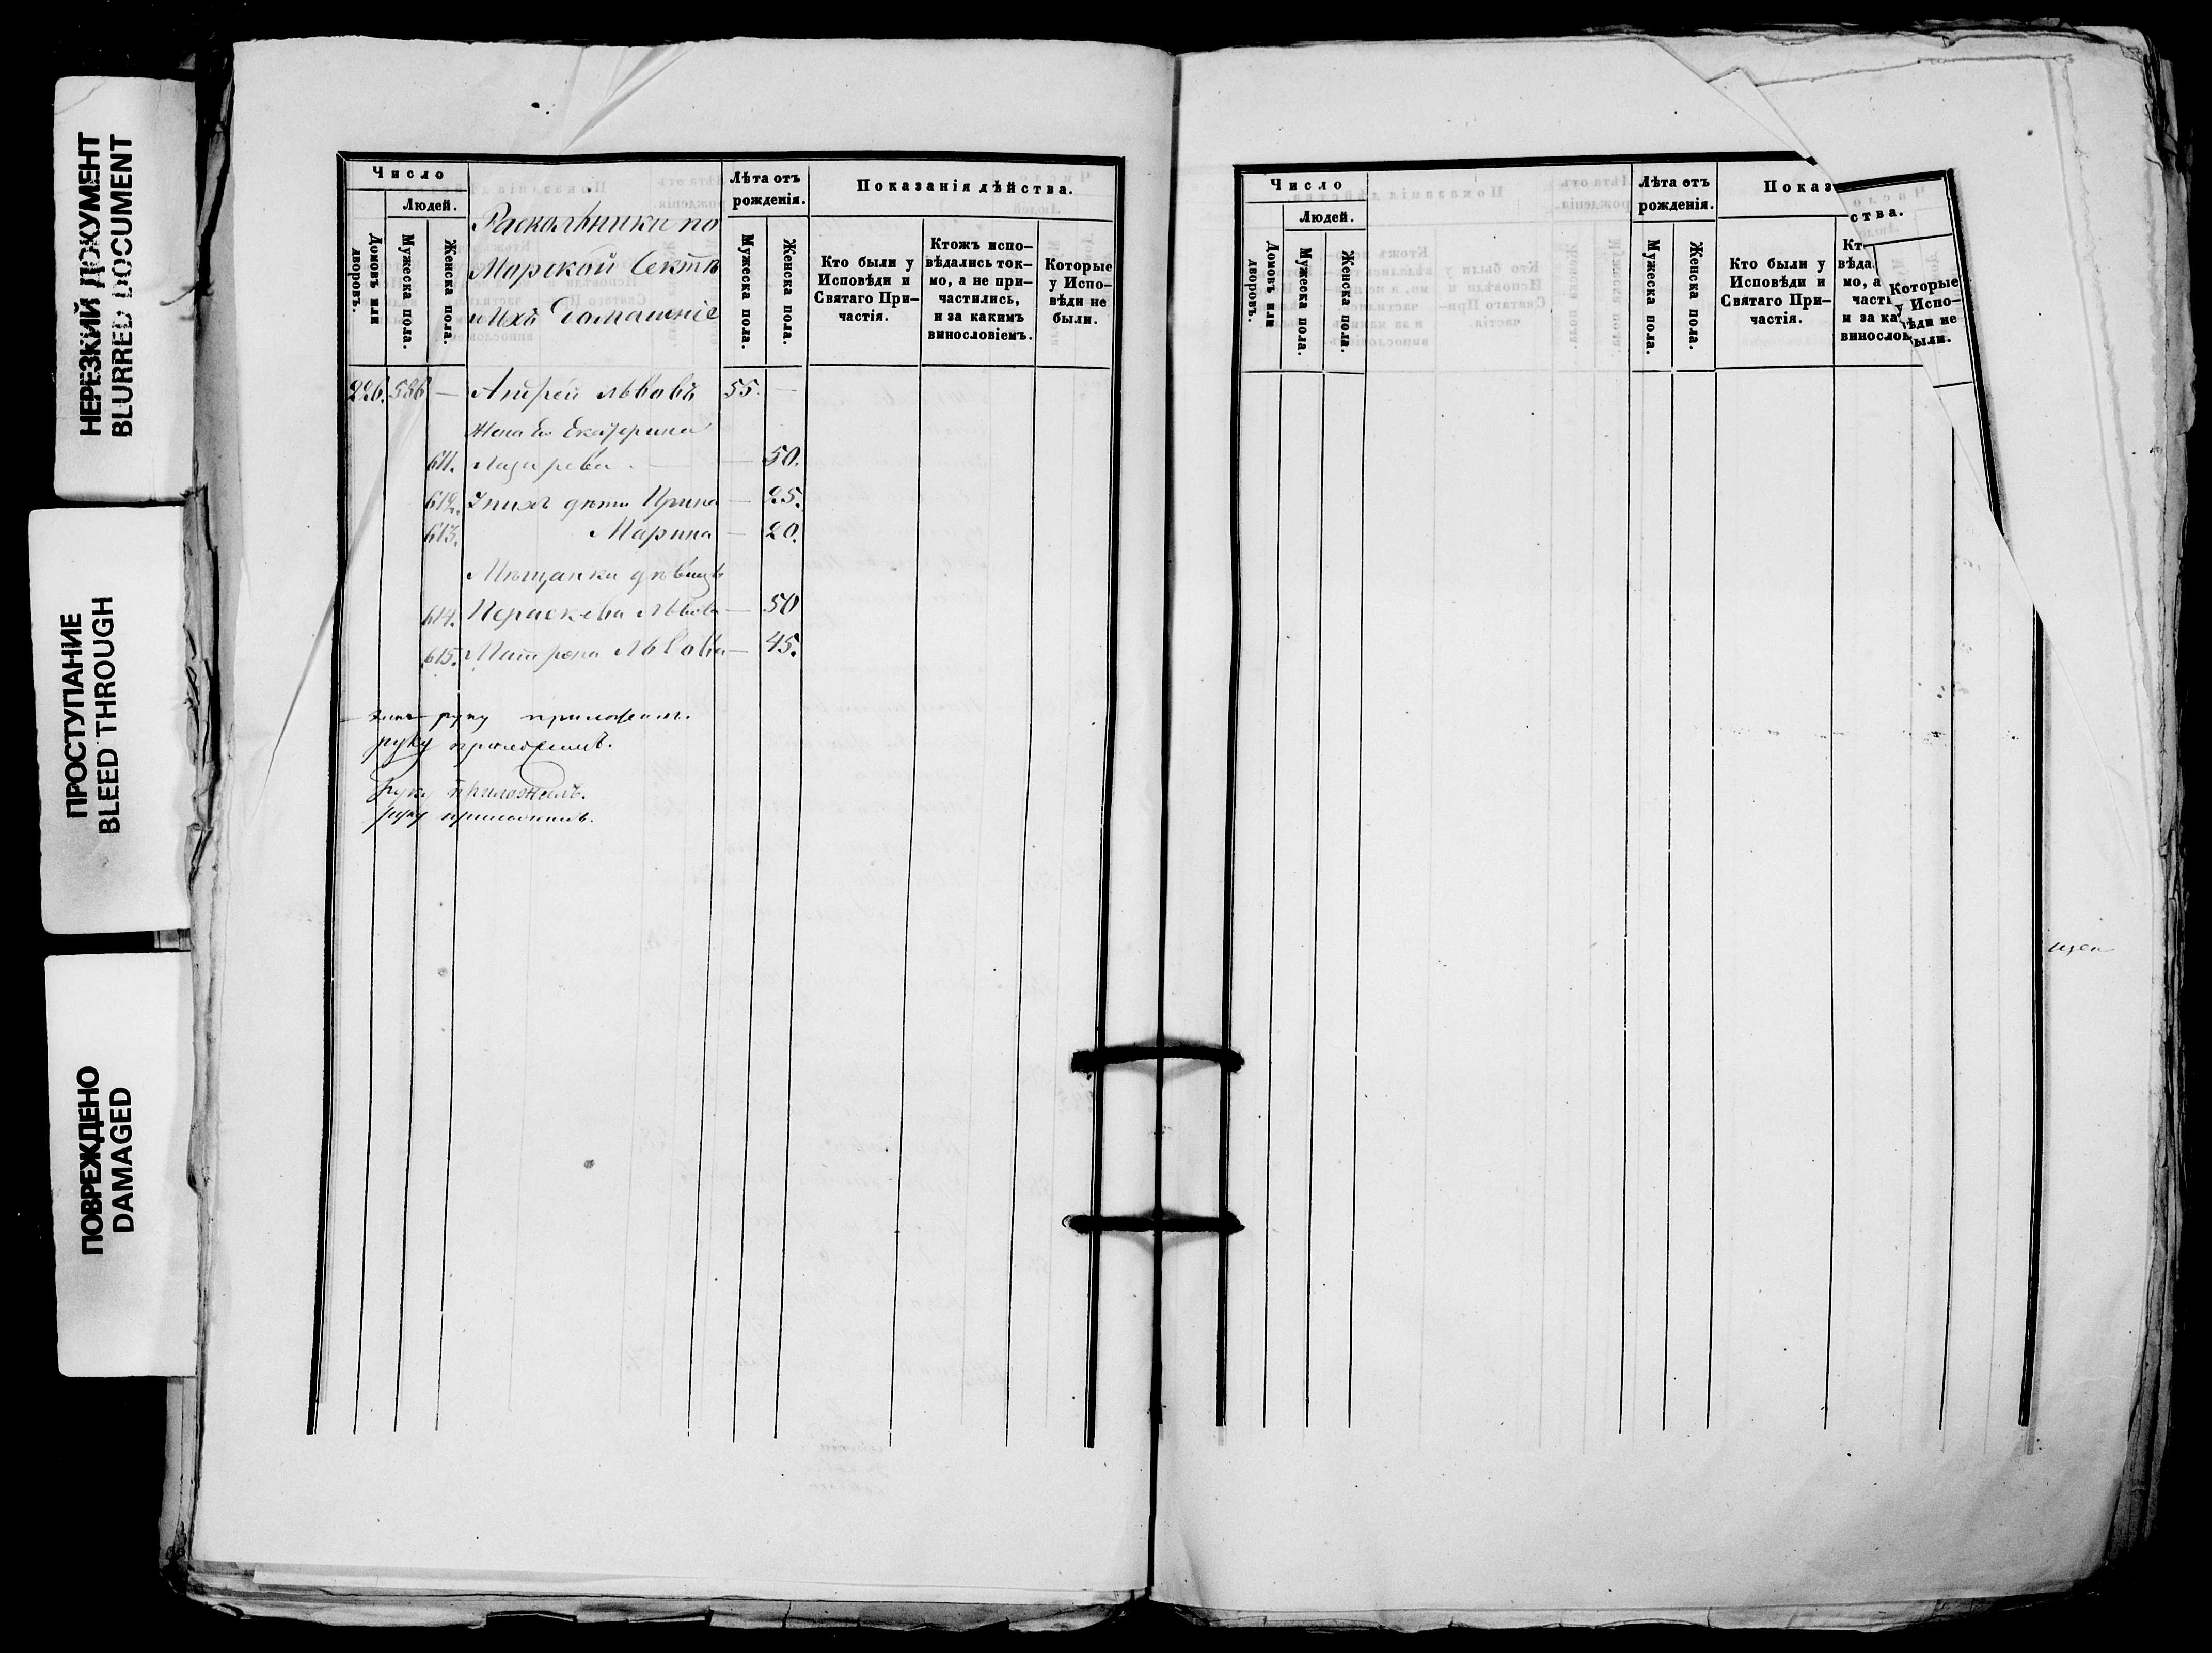 НЕРЕЗКИЙ ДОКУМЕНТ
BLURRED DOCUMENT
ПРОСТУПАНИЕ
BLEED THROUGH
ПОВРЕЖДЕНО
DAMAGED
Число
Людей.
Домовъ или дворовъ.
Мужеска пола.
Женска пола.
Раскольники по
Марской Сектѣ
и Ихъ Домашніе
Лѣта отъ рожденія.
Мужеска пола.
Женска пола.
Показанія дѣйства.
Кто были у Исповѣди и Святаго При-
частія.
Ктожъ испо-
вѣдались ток-
мо, а не при-
частились,
и за какимъ
винословіемъ.
Которые
у Испо-
вѣди не
были.
226. 586 — Андрей Львовъ 55. —
Жена Его Екатерина
611. Лазарева. — — 50.
612. Ихъ дѣти Ирина — 25.
613. Марина — 20.
Мѣщанки дѣвицы
614. Параскева Львова — 50
615. Матрона Львова — 45.
руку приложилъ.
руку приложилъ.
руку приложилъ.
руку приложилъ.
Число
Людей.
Домовъ или дворовъ.
Мужеска пола.
Женска пола.
Лѣта отъ
рожденія.
Мужеска пола.
Женска пола.
Показ
ства.
Кто были у
Исповѣди и
Святаго При-
частія.
Кт
вѣда
мо, а
част
и за ка
винослов
Которые
у Испо-
вѣди не
были.